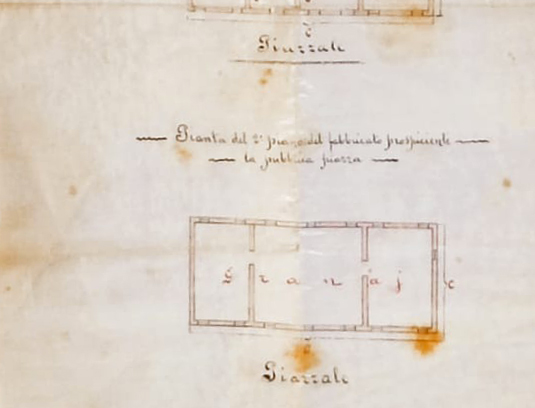 c
Piazzale
Pianta del 2° piano del fabbricato prospiciente
la pubblica piazza
Granaj
c
Piazzale